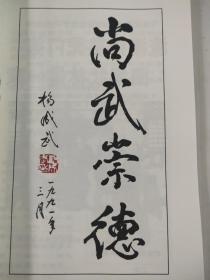 尚武崇德
杨成武
一九九一年
三月